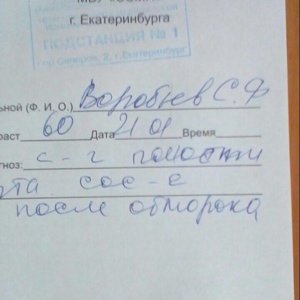 г. Екатеринбурга
ПОДСТАНЦИЯ № 1
2, г. Екатеринбург
льной (Ф. И. О.) Воробьев С.Ф
раст 60 Дата 21 01 Время
гноз: с-г полости
рта сос-е
после обморока